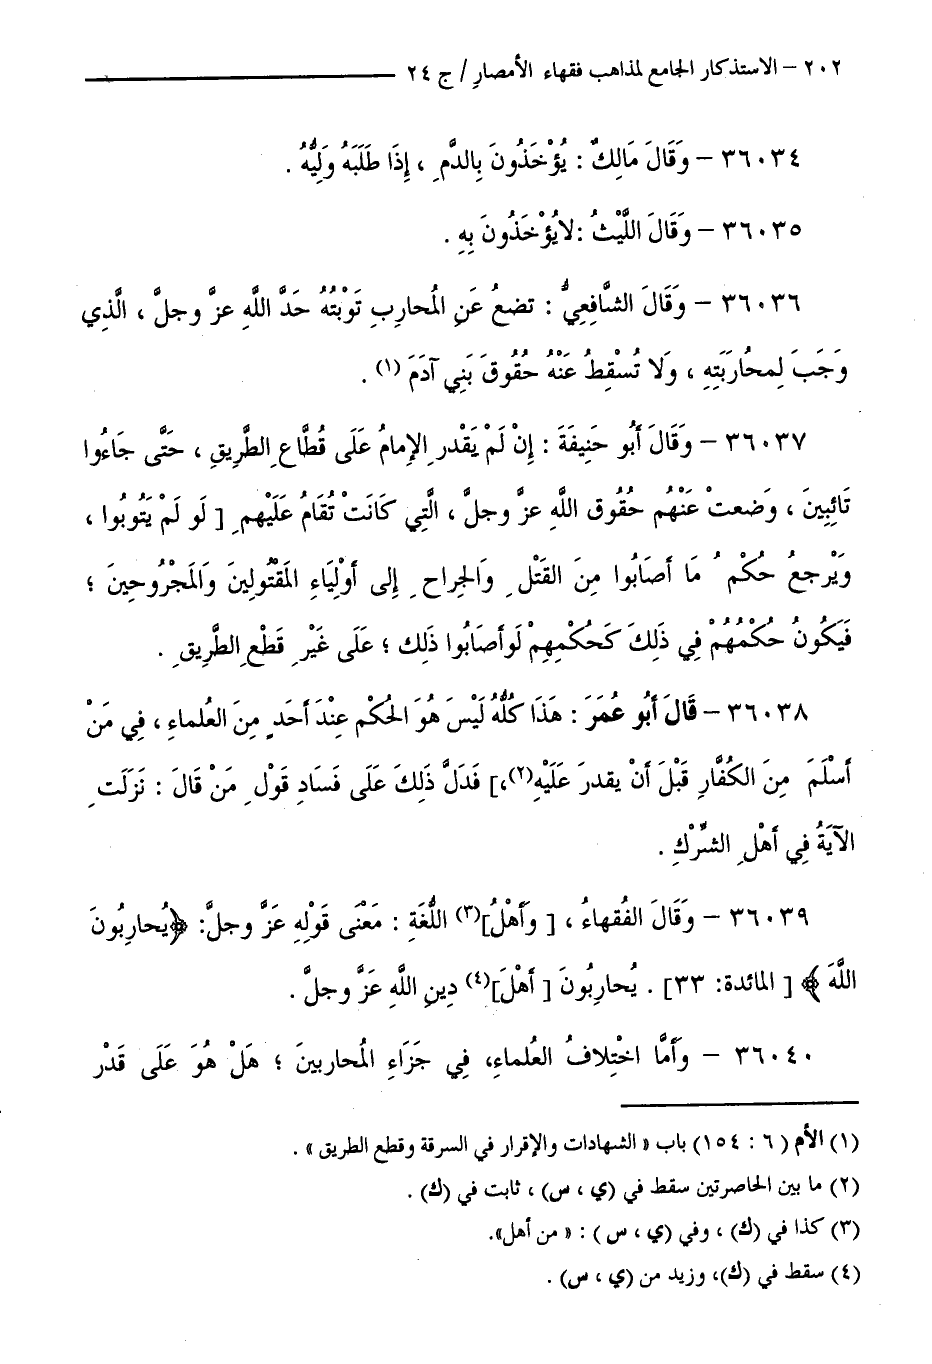 ٢٠٢ – الاستذكار الجامع لمذاهب فقهاء الأمصار / ج ٢٤
٣٦٠٣٤ – وَقَالَ مَالِكٌ : يُؤْخَذُونَ بِالدَّمِ ، إِذَا طَلَبَهُ وَلِيُّهُ .
٣٦٠٣٥ – وَقَالَ اللَّيْثُ :لايُؤْخَذُونَ بِهِ .
٣٦٠٣٦ – وَقَالَ الشَّافِعِيُّ : تضعُ عَنِ المُحارِبِ تَوْبَتُهُ حَدَّ اللَّهِ عزَّ وجلَّ ، الَّذِي
وَجَبَ لِمحُارَبَتِهِ ، وَلا تُسْقِطُ عَنْهُ حُقُوقَ بَنِي آدَمَ (١) .
٣٦٠٣٧ – وَقَالَ أَبُو حَنِيفَةَ : إِنْ لَمْ يَقْدرِ الإِمامُ عَلَى قُطَّاعِ الطَّرِيقِ ، حَتَّى جَاءُوا
تَائِبِينَ ، وَضعتْ عَنْهُم حُقُوق اللَّهِ عزَّ وجلَّ ، الَّتِي كَانَتْ تُقَامُ عَلَيْهمِ [ لَو لَمْ يَتُوبُوا ،
وَيَرْجعُ حُكْم ُ مَا أَصَابُوا مِنَ القَتْلِ وَالجِراحِ إِلى أَوْلِيَاءِ المَقْتُولِينَ وَالمَجْرُوحِينَ ؛
فَيَكُونُ حُكْمُهُمْ فِي ذَلِكَ كَحُكْمِهِمْ لَوأصَابُوا ذَلِك ؛ عَلَى غَيْرِ قَطْعِ الطَّرِيقِ .
٣٦٠٣٨ – قَالَ أَبُو عُمَرَ : هَذَا كُلُّهُ لَيْسَ هُوَ الحُكْم عِنْدَ أَحَدٍ مِنَ العُلماءِ ، فِي مَنْ
أَسْلَمَ مِنَ الكُفَّارِ قَبْلَ أَنْ يقدرَ عَلَيْهِ(٢)،] فَدَلَّ ذَلِكَ عَلَى فَسَادِ قَوْلِ مَنْ قَالَ : نَزَلَتِ
الآيَةُ فِي أَهْلِ الشِّرْكِ .
٣٦٠٣٩ – وَقَالَ الفُقهاءُ ، [ وأَهْلُ](٣) اللُّغَةِ : مَعْنَى قَوْلِهِ عَزَّ وجلَّ: ﴿يُحارِبُونَ
اللَّهَ ﴾ [ المائدة: ٣٣] . يُحارِبُونَ [ أَهْلَ](٤) دِينِ اللَّهِ عَزَّ وجلَّ .
٣٦٠٤٠ – وَأَمَّا اخْتِلافُ العُلماءِ، فِي جَزَاءِ المُحاربينَ ؛ هَلْ هُوَ عَلَى قَدْر
(١) الأم ( ٦ : ١٥٤) باب « الشهادات والإقرار في السرقة وقطع الطريق » .
(٢) ما بين الحاصرتين سقط في (ي ، س) ، ثابت في (ك) .
(٣) كذا في (ك) ، وفي (ي ، س ) : « من أهل».
(٤) سقط في (ك)، وزيد من (ي ، س) .